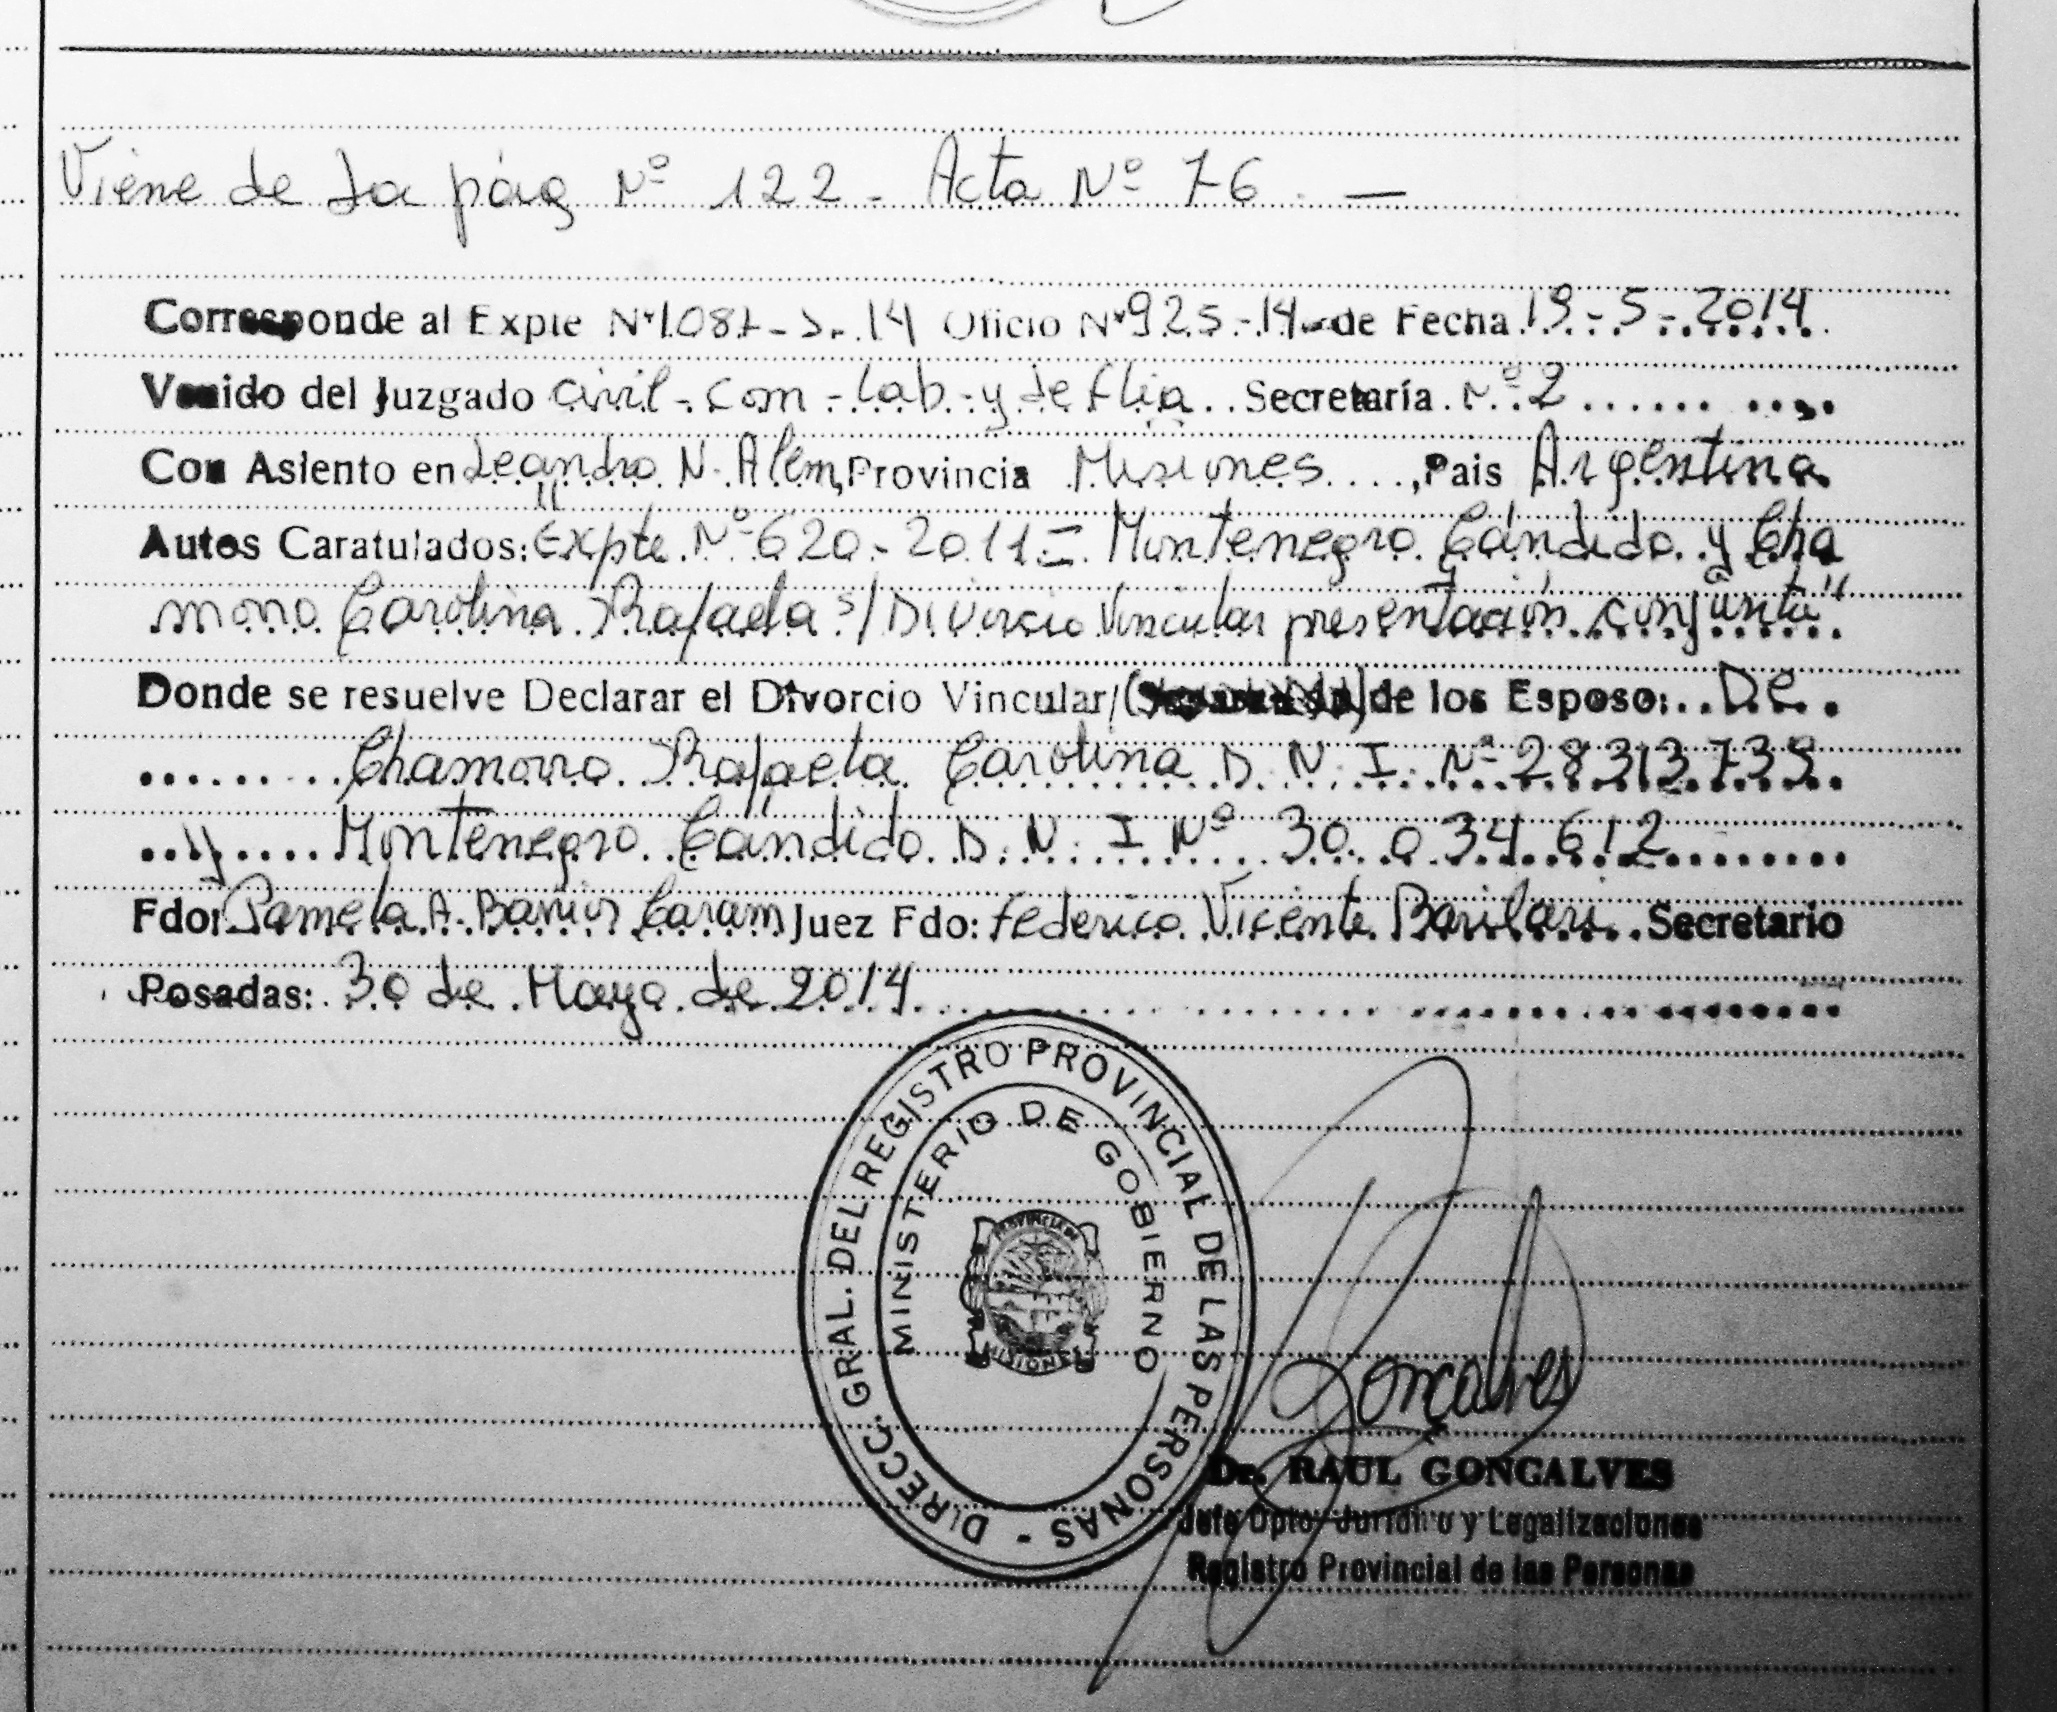 Viene de la pág Nº 122 - Acta Nº 76. —
Corresponde al Expte Nº 1087 - S - 14 Oficio Nº 925 - 14 - de Fecha 19 - 5 - 2014
Venido del Juzgado Civil - Com - Lab - y de flia.. Secretaría. Nº 2
Con Asiento en Leandro N. Alem, Provincia Misiones ...., Pais Argentina
Autos Caratulados: "Expte Nº 620 - 2011 = Montenegro Cándido y Cha
morro Carolina Rafaela s/ Divorcio Vincular presentación conjunta"
Donde se resuelve Declarar el Divorcio Vincular/ de los Esposo: .. De
Chamorro Rafaela Carolina D. N. I. Nº 28313739
y Montenegro Cándido D. N. I Nº 30 034 612
Fdo: Pamela A. Barrios Caram Juez Fdo: Federico Vicente Barilari Secretario
Posadas: 30 de Mayo de 2014
DIRECC. GRAL. DEL REGISTRO PROVINCIAL DE LAS PERSONAS -
MINISTERIO DE GOBIERNO
PROVINCIA DE
MISIONES
Gonçalves
Dr. RAUL GONCALVES
Jefe Dpto. Jurídico y Legalizaciones
Registro Provincial de las Personas